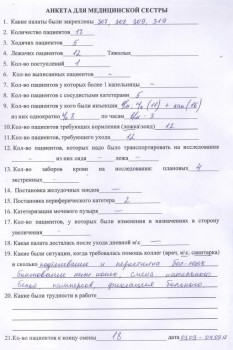 АНКЕТА ДЛЯ МЕДИЦИНСКОЙ СЕСТРЫ
1. Какие палаты были закреплены 307, 309, 310
2. Количество пациентов 17
3. Ходячих пациентов 5
4. Лежачих пациентов 12 Тяжелых
5. Кол-во поступлений 1
6. Кол-во выписанных пациентов -
7. Кол-во пациентов, у которых более 1 капельницы -
8. Кол-во пациентов с сосудистыми катетерами 5
9. Кол-во пациентов у кого были инъекции
из них одномоментно по часам
10. Кол-во пациентов требующих кормления (ложка/зонд) 12
11. Кол-во пациентов требующих ухода 12
12. Кол-во пациентов, которых надо было транспортировать на исследования
- из них лифа - лежа -
13. Кол-во заборов крови на исследование: плановых 4
экстренных -
14. Постановка желудочных зондов —
15. Постановка периферического катетера 2
16. Катетеризация мочевого пузыря —
17. Кол-во пациентов, у которых были изменения в назначениях в сторону
увеличения —
18. Какая палата досталась после ухода дневной м/с —
19. Какие были ситуации, когда требовалась помощь коллег (врач, м/с, санитарка)
и сколько
смена
белья памперсов, фиксация больного
20. Какие были трудности в работе
21. Кол-во пациентов к концу смены 18 дата